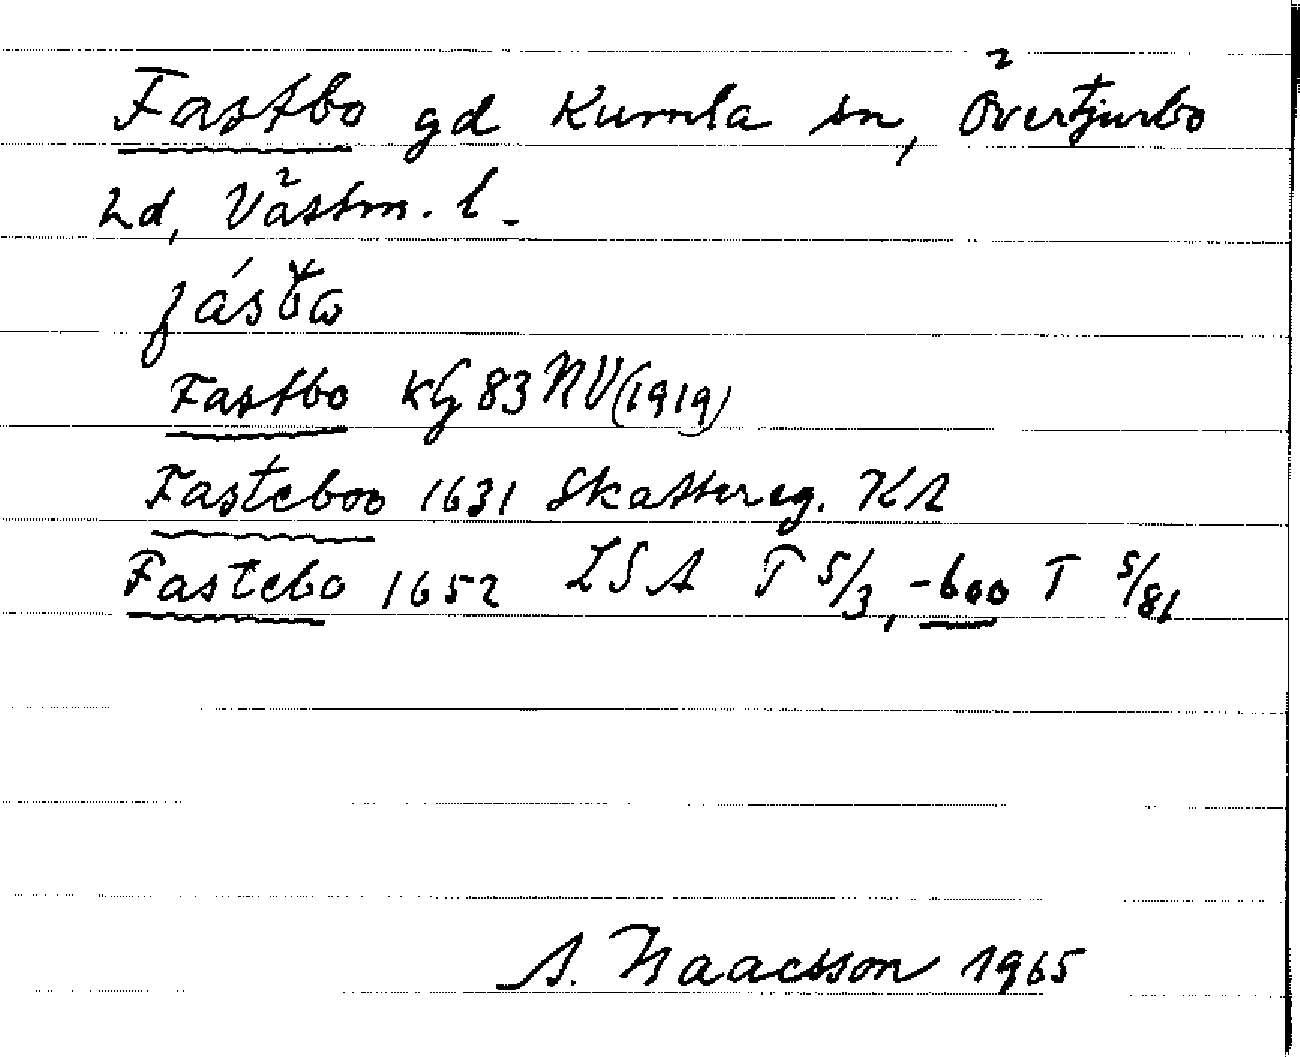 Fastbo gd Kumla sn, Övertjurbo
hd, Västm. l.
Fastbo kG 83 NV (1919)
Fasteboo 1631 Skattereg. KA
Fastebo 1652 LSA T 5/3, -boo T 5/81
A. Isaacsson 1965